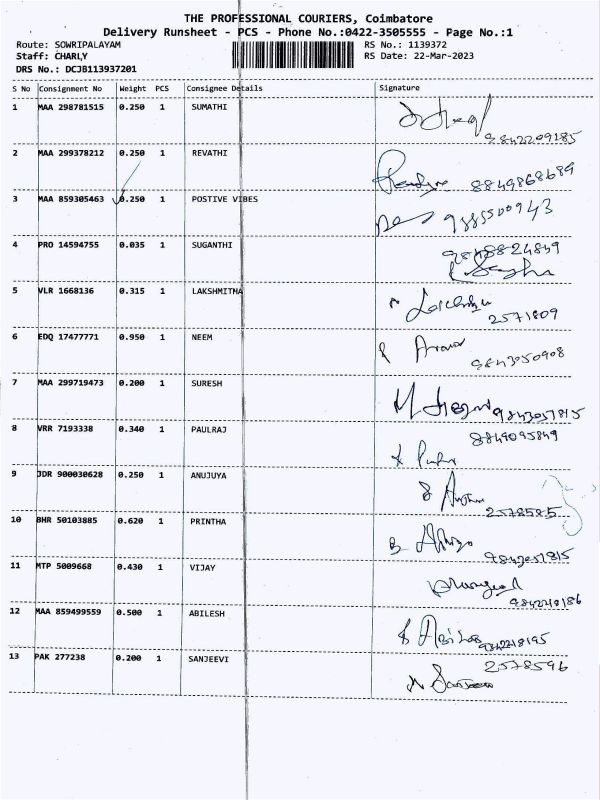 THE PROFESSIONAL COURIERS, Coimbatore
Delivery Runsheet - PCS - Phone No.:0422-3505555 - Page No.:1
Route: SOWRIPALAYAM RS No.: 1139372
Staff: CHARLY RS Date: 22-Mar-2023
DRS No.: DCJB113937201
S No Consignment No Weight PCS Consignee Details Signature
1 MAA 298781515 0.250 1 SUMATHI
9842209185
2 MAA 299378212 0.250 1 REVATHI
8849868689
3 MAA 859305463 0.250 1 POSTIVE VIBES
9885500943
4 PRO 14594755 0.035 1 SUGANTHI
5 VLR 1668136 0.315 1 LAKSHMITHA
2571809
6 EDQ 17477771 0.950 1 NEEM
9843050908
7 MAA 299719473 0.200 1 SURESH
9843057815
8 VRR 7193338 0.340 1 PAULRAJ
8849095849
9 JDR 900030628 0.250 1 ANUJUYA
2578585
10 BHR 50103885 0.620 1 PRINTHA
9843057815
11 MTP 5009668 0.430 1 VIJAY
9842218186
12 MAA 859499559 0.500 1 ABILESH
9842218195
13 PAK 277238 0.200 1 SANJEEVI
2578596